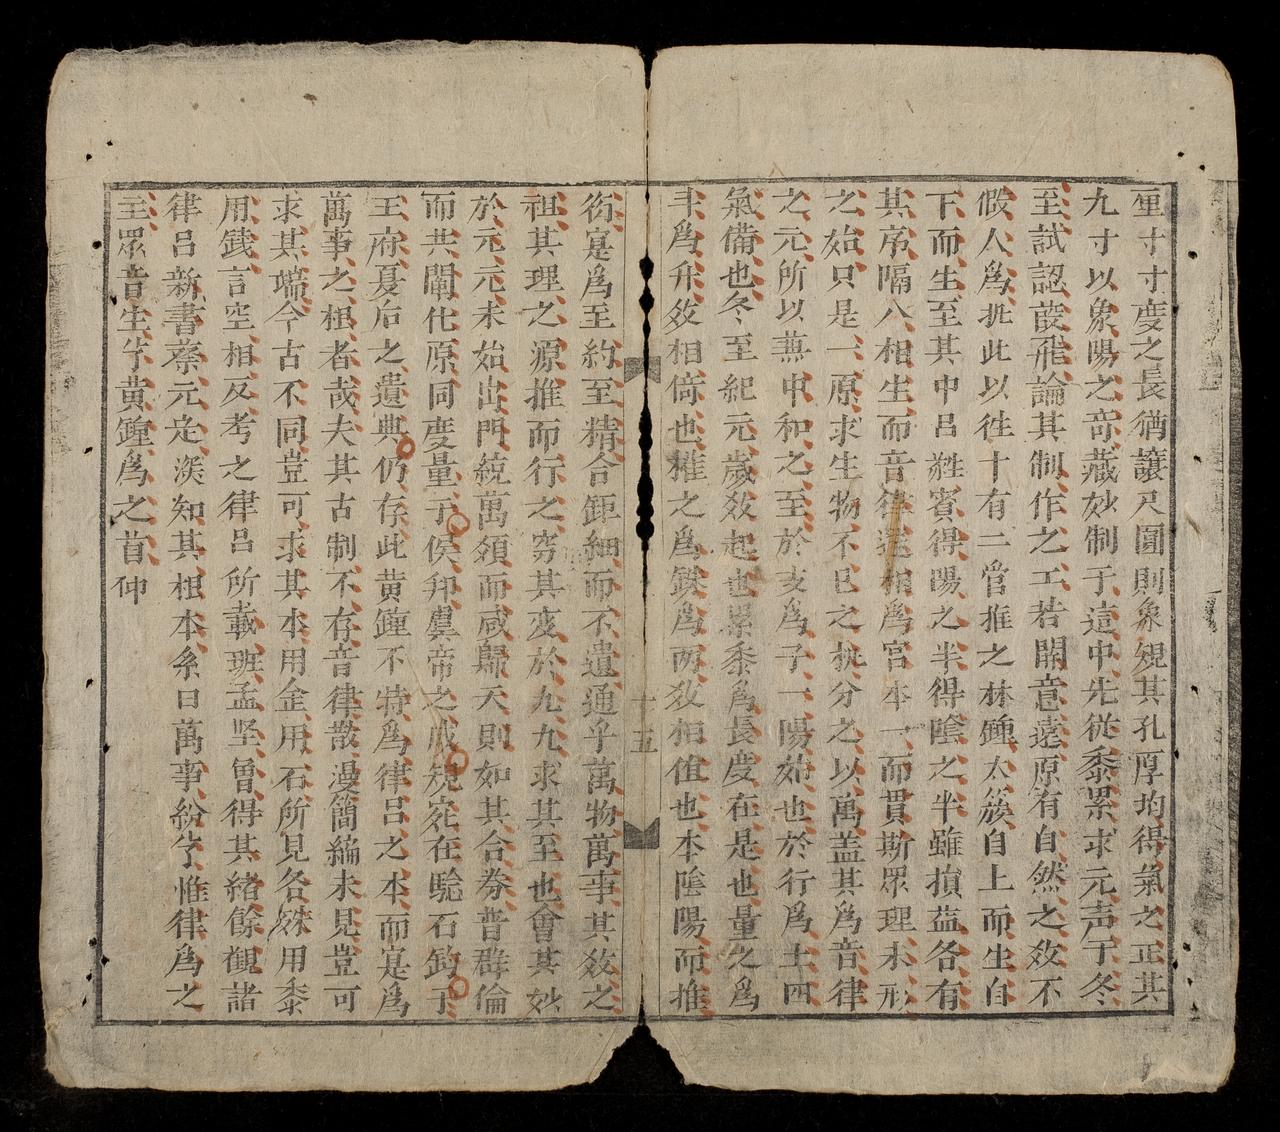 重寸寸度之長猶讓尺圍則象規其孔厚均得氣之正其
九寸以象陽之奇藏妙制于這中先從黍累求元声于冬
至試認葭飛論其制作之工若閑意遠原有自然之效不
假人為扵此以徃十有二管推之林鍾太簇自上而生自
下而生至其中呂蕤賓得陽之半得陰之半雖損益各有
其序隔八相生而音律還相為宮本一而貫斯眾理未形
之始只是一原求生物不已之機分之以萬盖其為音律
之元所以無中和之至於支為子一陽始也於行為土四
氣備也冬至紀元歲效起也累黍為長度在是也量之為
斗為升效相倚也權之為銖為兩效相值也本陰陽而推
十五
衍寔為至約至精合鉅細而不遺通乎萬物萬事其效之
祖其理之源推而行之穷其变於九九求其至也會其妙
於元元未始出門統萬類而咸歸天則如其合券普群倫
而共闡化原同度量于侯邦虞帝之成規宛在驗石鈞于
王府夏后之遺典仍存此黄鍾不特為律吕之本而寔為
萬事之根者哉夫其古制不存音律散漫簡編未見豈可
求其端今古不同豈可求其本用金用石所見各殊用黍
用錢言空相反考之律吕所載班孟堅魯得其緒餘觀諸
律吕新書蔡元定深知其根本系曰萬事紛兮惟律為之
主眾音生兮黄鍾為之首仲